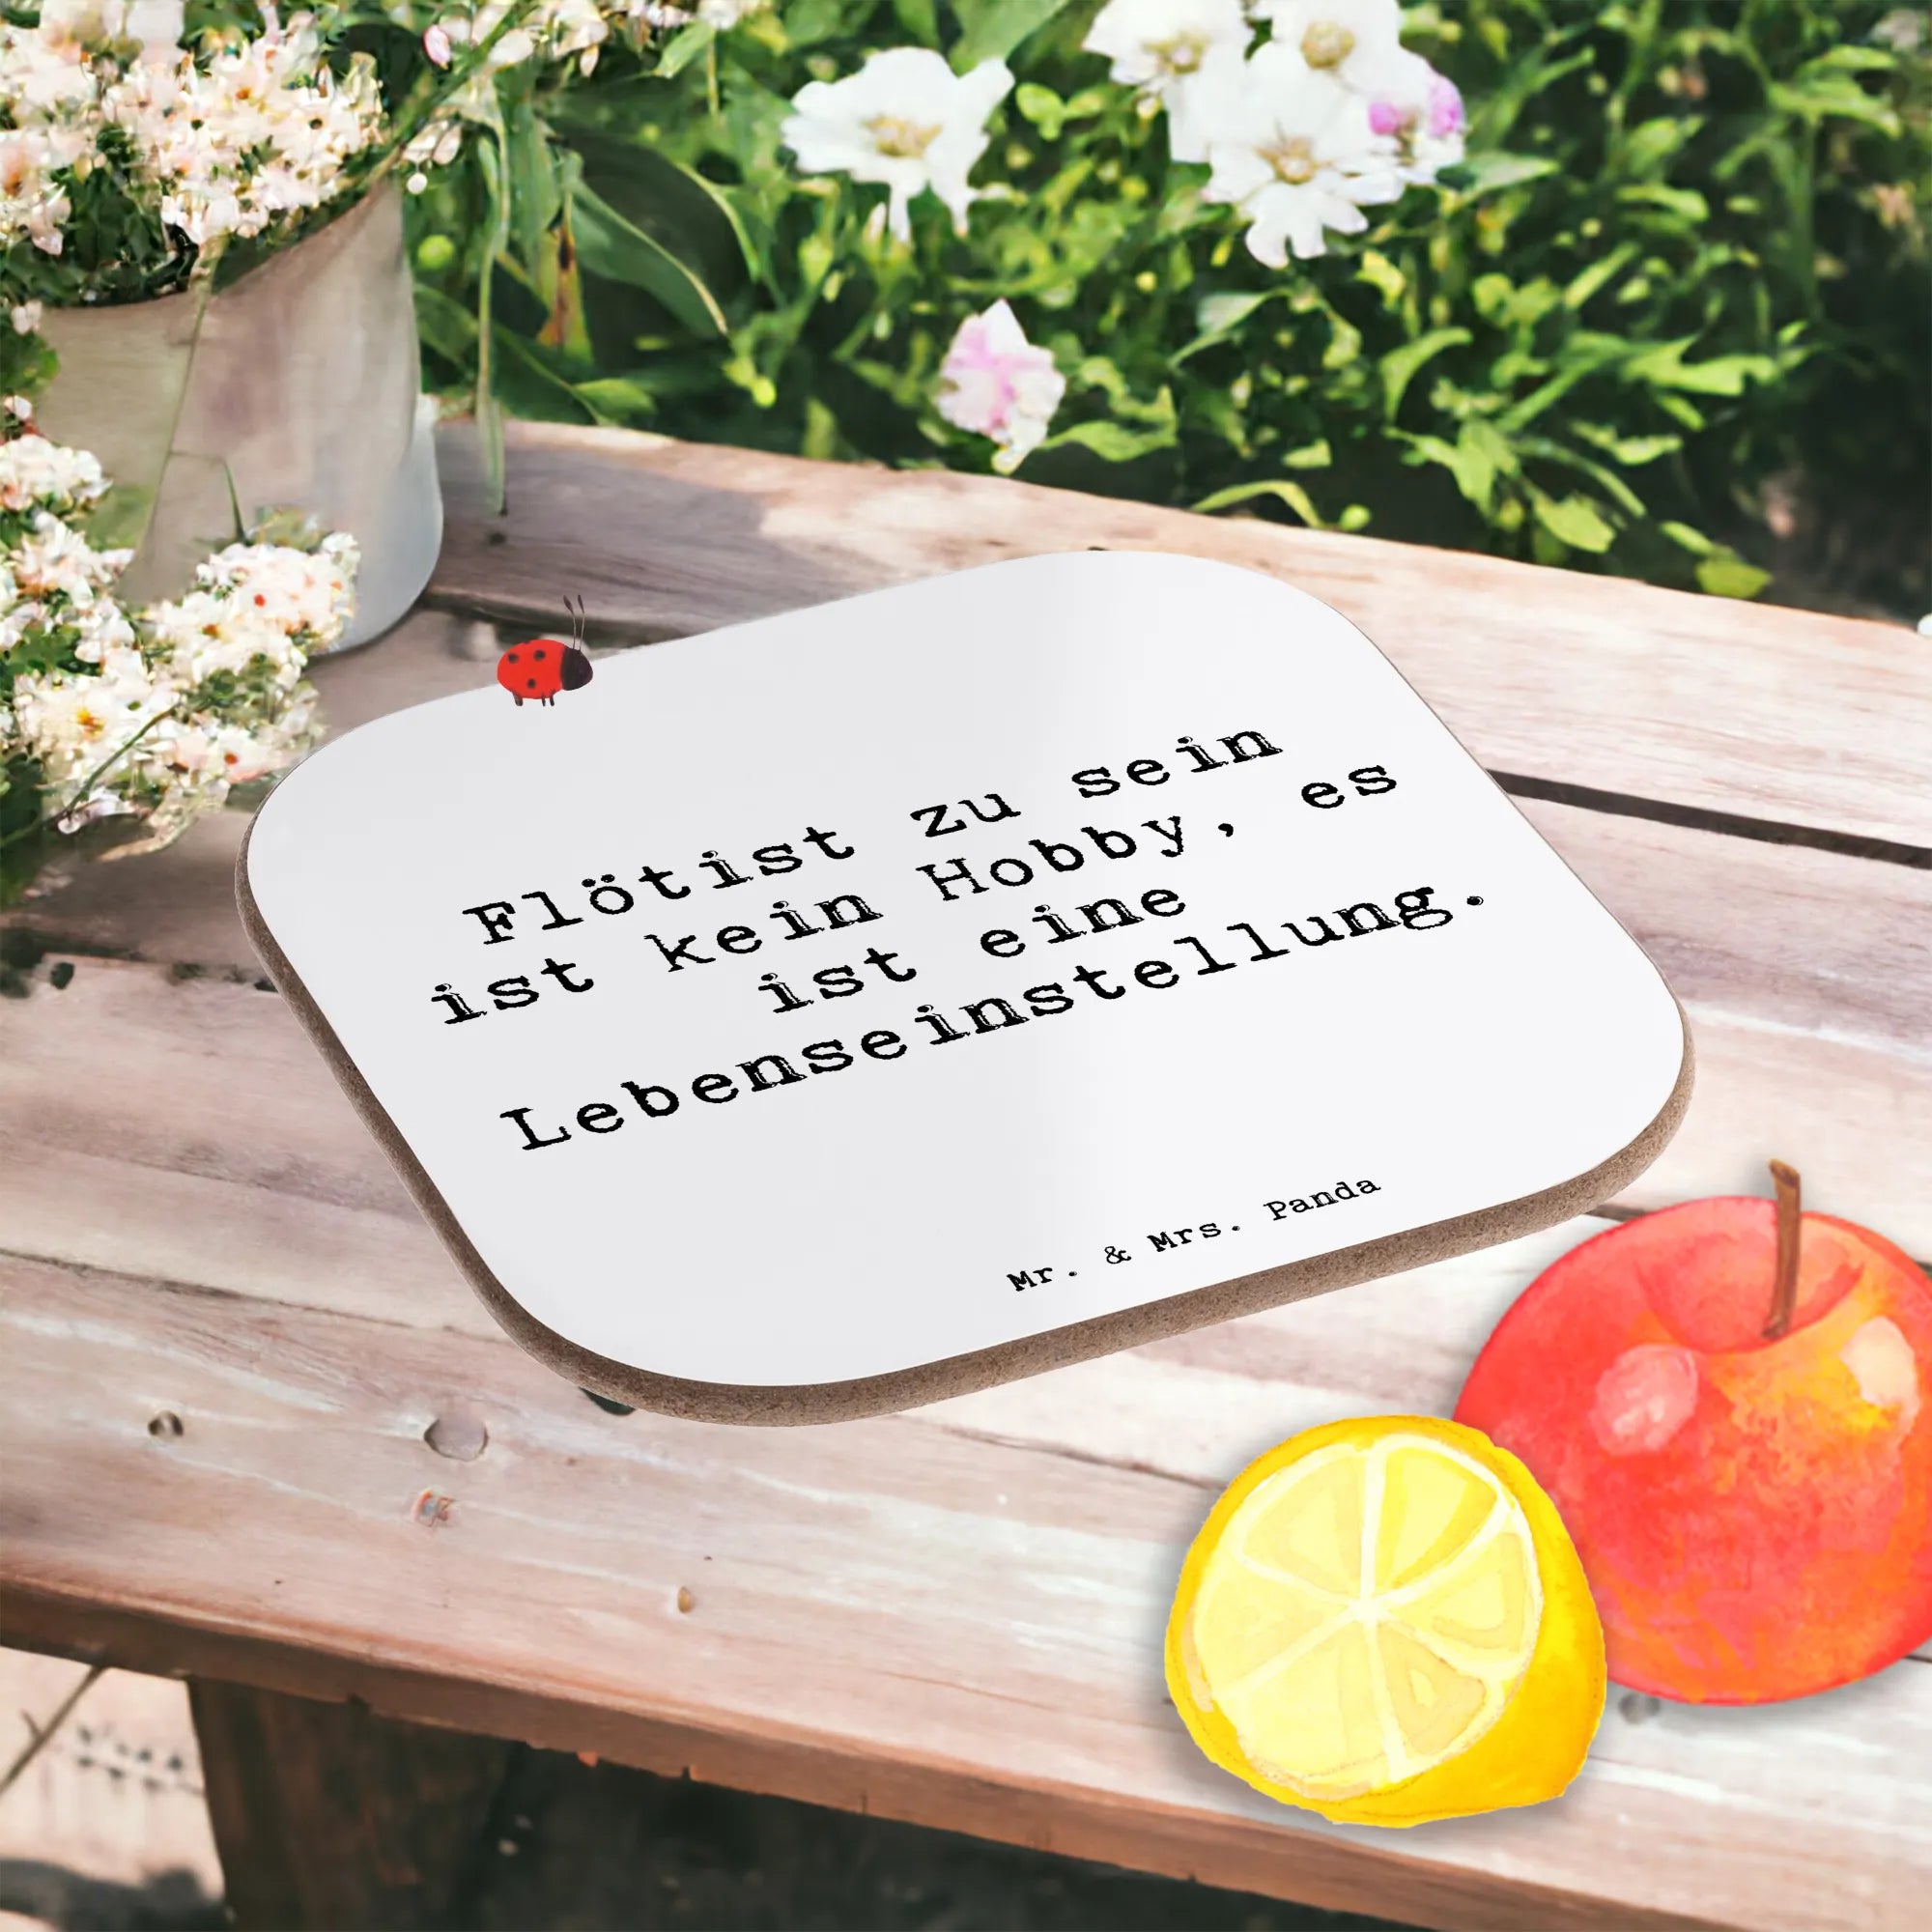 Flötist zu sein
ist kein Hobby, es
ist eine
Lebenseinstellung.
Mr. & Mrs. Panda